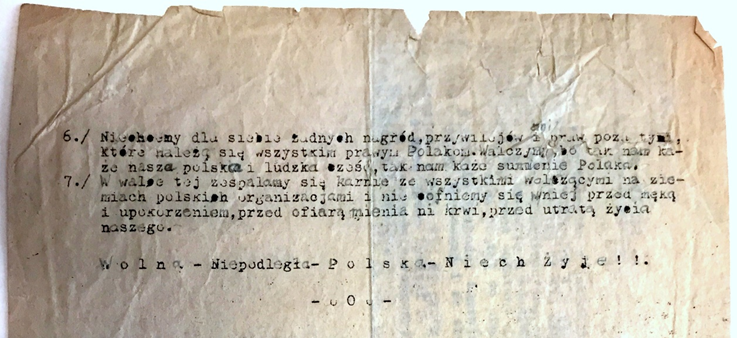 6./ Niechcemy dla siebie żadnych nagród,przywilejów i praw poza tymi,
które należą się wszystkim prawym Polakom.Walczymy,bo tak nam ka-
że nasza polska i ludzka cześć,tak nam każe sumienie Polaka.
7./ W walce tej zespalamy się karnie ze wszystkimi walczącymi na zie-
miach polskich organizacjami i nie cofniemy się w niej przed męką
i upokorzeniem,przed ofiarą mienia ni krwi,przed utratą życia
naszego.
W o l n a - Niepodległa- P o l s k a - N i e c h Ż y j e ! ! .
- o O o -